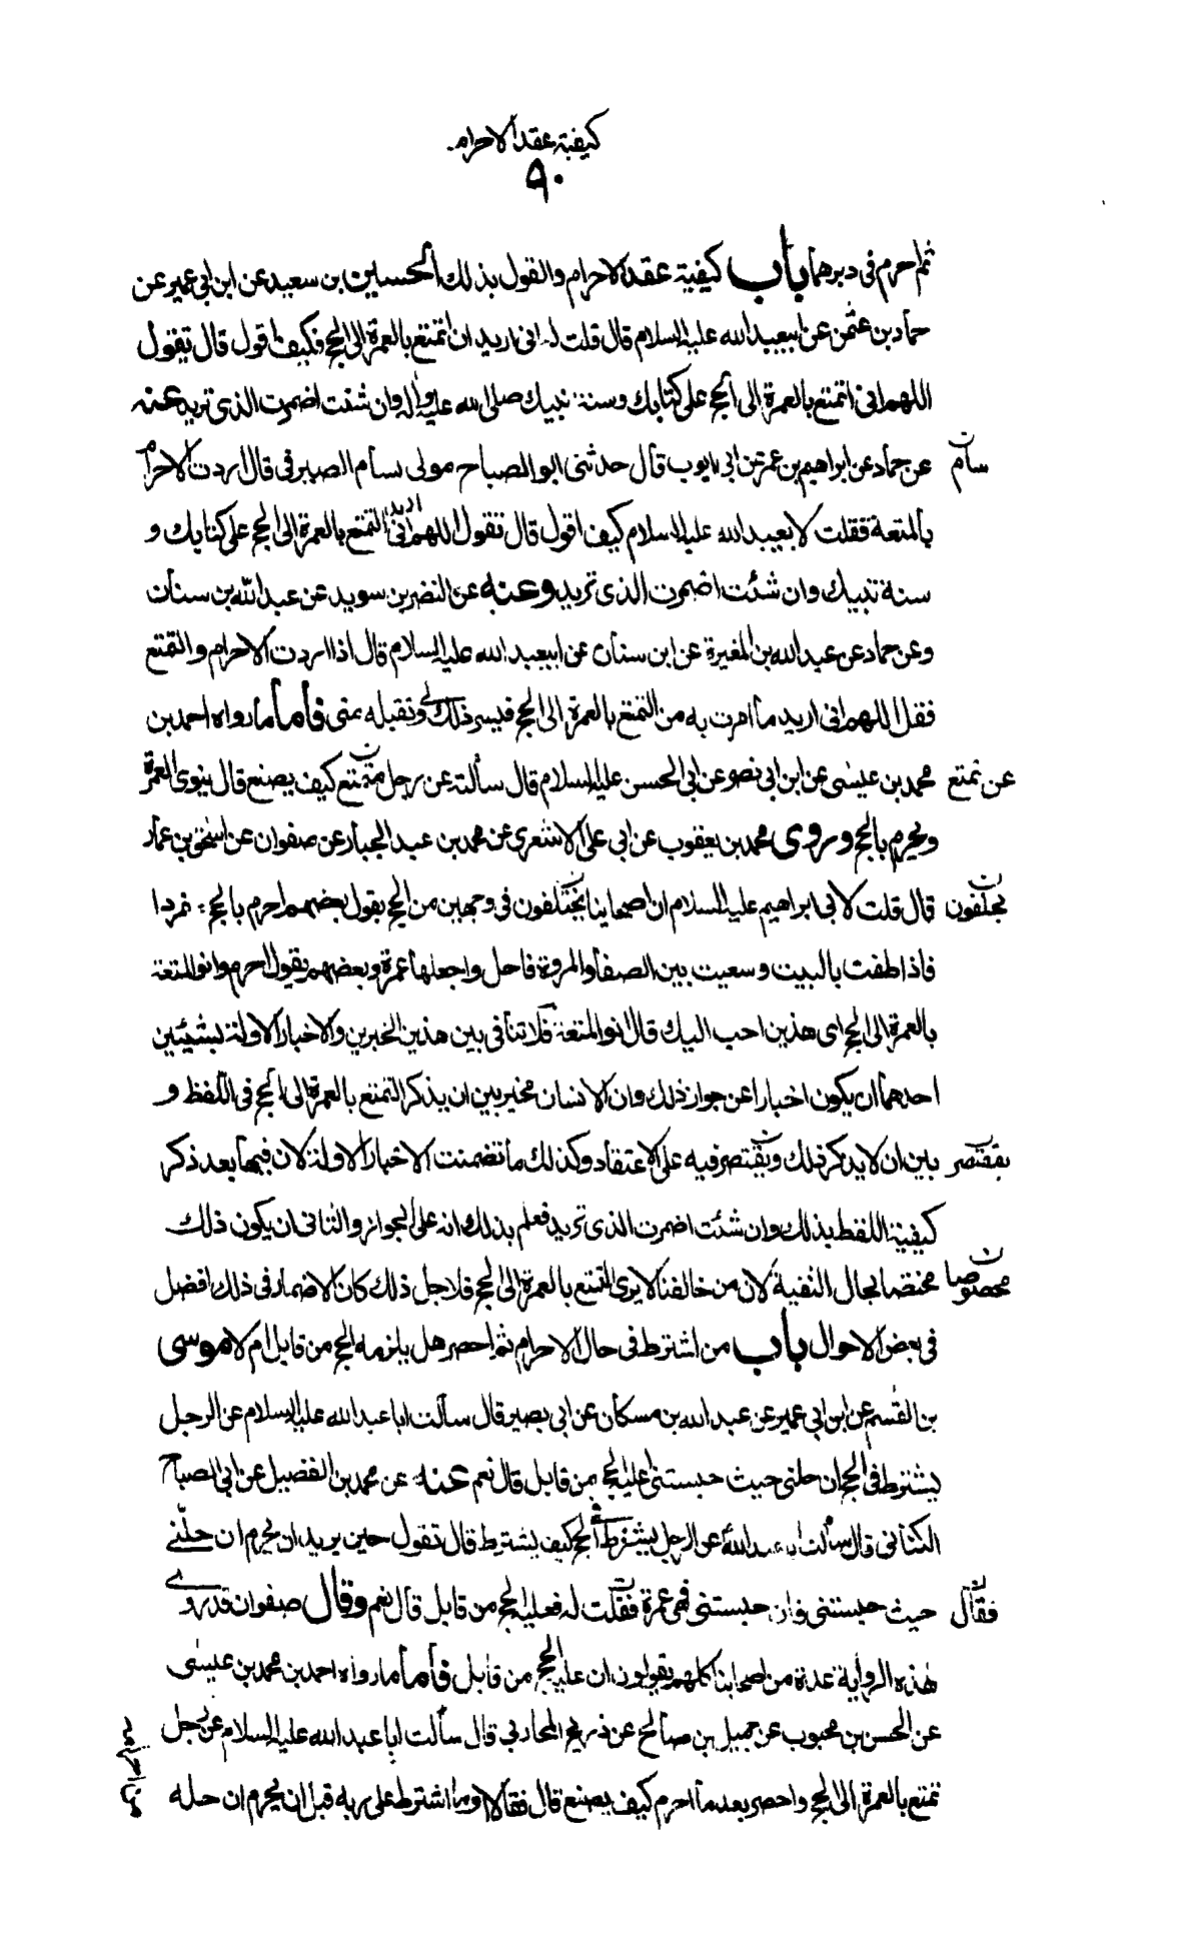 كيفية عقد الاحرام.
٩٠
ثم احرم فى دبرهما باب كيفية عقد الاحرام والقول بذلك الحسين بن سعيد عن ابن ابى عمير عن
حماد بن عثمن عن ابيعبد الله عليه السلام قال قلت له انى اريد ان اتمتع بالعمرة الى الحج فكيف اقول قال تقول
اللهم انى اتمتع بالعمرة الى الحج على كتابك وسنة نبيك صلى الله عليه واله وان شئت اضمرت الذى تريد عنه
سام عن حماد عن ابراهيم بن عمر عن ابى ايوب قال حدثنى ابو الصباح مولى بسام الصيرفى قال اردت الاحرام
بالمتعة فقلت لابيعبد الله عليه السلام كيف اقول قال تقول اللهم انى اريد التمتع بالعمرة الى الحج على كتابك و
سنة نبيك وان شئت اضمرت الذى تريد وعنه عن النضر بن سويد عن عبد الله بن سنان
وعن حماد عن عبد الله بن المغيرة عن ابن سنان عن ابيعبد الله عليه السلام قال اذا اردت الاحرام والتمتع
فقل اللهم انى اريد ما امرت به من التمتع بالعمرة الى الحج فيسر ذلك لى وتقبله منى فأما ما رواه احمد بن
عن تمتع محمد بن عيسى عن ابن ابى نصر عن ابى الحسن عليه السلام قال سألته عن رجل متمتع كيف يصنع قال ينوى العمرة
ويحرم بالحج وروى محمد بن يعقوب عن ابى على الاشعرى عن محمد بن عبد الجبار عن صفوان عن اسحق بن عمار
يختلفون قال قلت لابى ابراهيم عليه السلام ان اصحابنا يختلفون فى وجهين من الحج يقول بعضهم احرم بالحج مفردا
فاذا طفت بالبيت وسعيت بين الصفا والمروة فاحل واجعلها عمرة وبعضهم يقول احرم وانو المتعة
بالعمرة الى الحج اى هذين احب اليك قال انو المتعة فلا تنافى بين هذين الخبرين والاخبار الاولة بشيئين
احدهما ان يكون اخبارا عن جواز ذلك وان الانسان مخير بين ان يذكر التمتع بالعمرة الى الحج فى اللفظ و
يقتصر بين ان لا يذكر ذلك ويقتصر فيه على الاعتقاد وكذلك ما تضمنت الاخبار الاولة لان فيها بعد ذكر
كيفية اللفظ بذلك وان شئت اضمرت الذى تريد فعلم بذلك انه على الجواز والثانى ان يكون ذلك
مخصوصا مختصا بحال التقية لان من خالفنا لا يرى التمتع بالعمرة الى الحج فلاجل ذلك كان الاضمار فى ذلك افضل
فى بعض الاحوال باب من اشترط فى حال الاحرام ثم احصر هل يلزمه الحج من قابل ام لا موسى
بن القسم عن ابن ابى عمير عن عبد الله بن مسكان عن ابى بصير قال سألت ابا عبد الله عليه السلام عن الرجل
يشترط فى الحج ان حلنى حيث حبستنى اعليه الحج من قابل قال نعم عنه عن محمد بن الفضيل عن ابى الصباح
الكنانى قال سألت ابا عبد الله عن الرجل يشترط فى الحج كيف يشترط قال تقول حين يريد ان يحرم ان حلنى
فقال حيث حبستنى وان حبستنى فهى عمرة فقلت له فعليه الحج من قابل قال نعم وقال صفوان قد روى
هذه الرواية عدة من اصحابنا كلهم يقولون ان عليه الحج من قابل فأما ما رواه احمد بن محمد بن عيسى
عن الحسن بن محبوب عن جميل بن صالح عن ذريح المحاربى قال سألت ابا عبد الله عليه السلام عن رجل
تمتع بالعمرة الى الحج واحصر بعد ما احرم كيف يصنع قال فقال او ما اشترط على ربه قبل ان يحرم ان حله